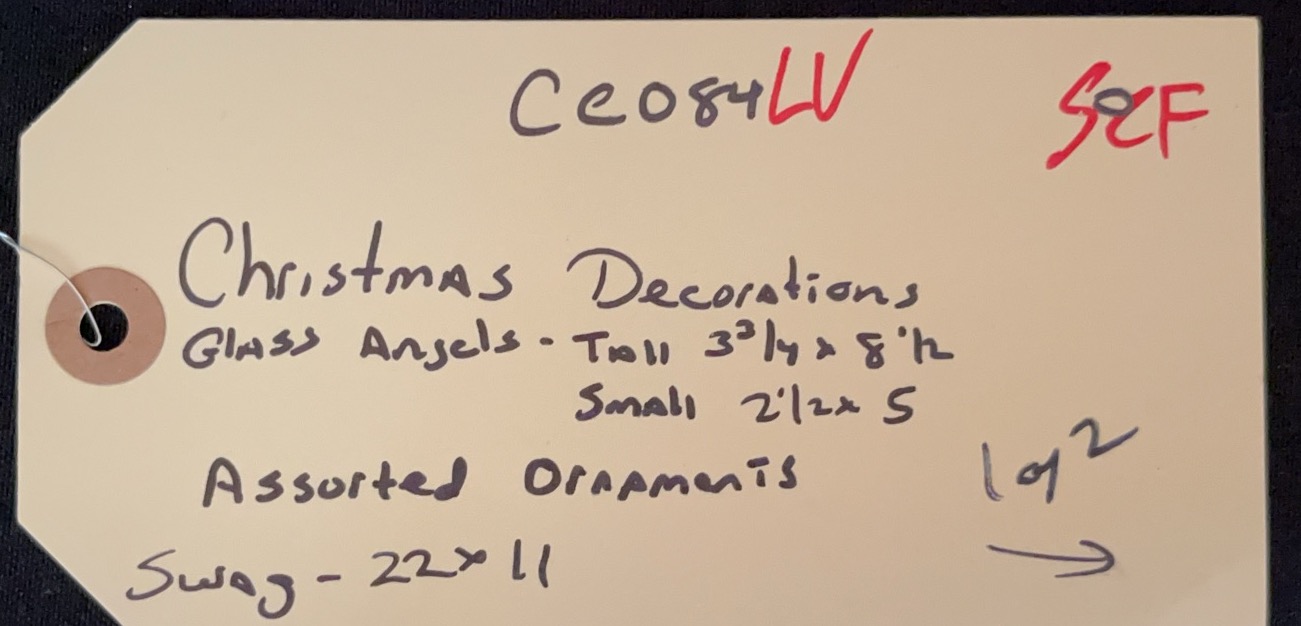 CC084LV
Christmas Decorations
Glass Angels - Tall 3 3/4 x 8 1/2
Small 2 1/2 x 5
Assorted Ornaments
1 of 2
Swag - 22 x 11